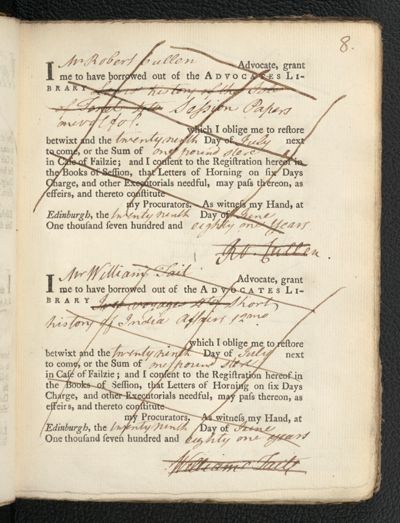 8.
I Mr Robert Cullen Advocate, grant
me to have borrowed out of the ADVOCATES LI-
BRARY history of the
Session Papers
which I oblige me to reſtore
betwixt and the twenty ninth Day of July next
to come, or the Sum of one pound Ster
in Caſe of Failzie; and I conſent to the Regiſtration hereof in
the Books of Seſſion, that Letters of Horning on ſix Days
Charge, and other Executorials needful, may paſs thereon, as
effeirs, and thereto conſtitute
my Procurators. As witneſs my Hand, at
Edinburgh, the twenty ninth Day of June
One thouſand ſeven hundred and eighty one years
Ro. Cullen.
I Mr William Tait Advocate, grant
me to have borrowed out of the ADVOCATES LI-
BRARY voyages 4to Short
history of India affairs 12mo
which I oblige me to reſtore
betwixt and the twenty ninth Day of July next
to come, or the Sum of one pound Ster
in Caſe of Failzie; and I conſent to the Regiſtration hereof in
the Books of Seſſion, that Letters of Horning on ſix Days
Charge, and other Executorials needful, may paſs thereon, as
effeirs, and thereto conſtitute
my Procurators. As witneſs my Hand, at
Edinburgh, the twenty ninth Day of June
One thouſand ſeven hundred and eighty one years
William Tait